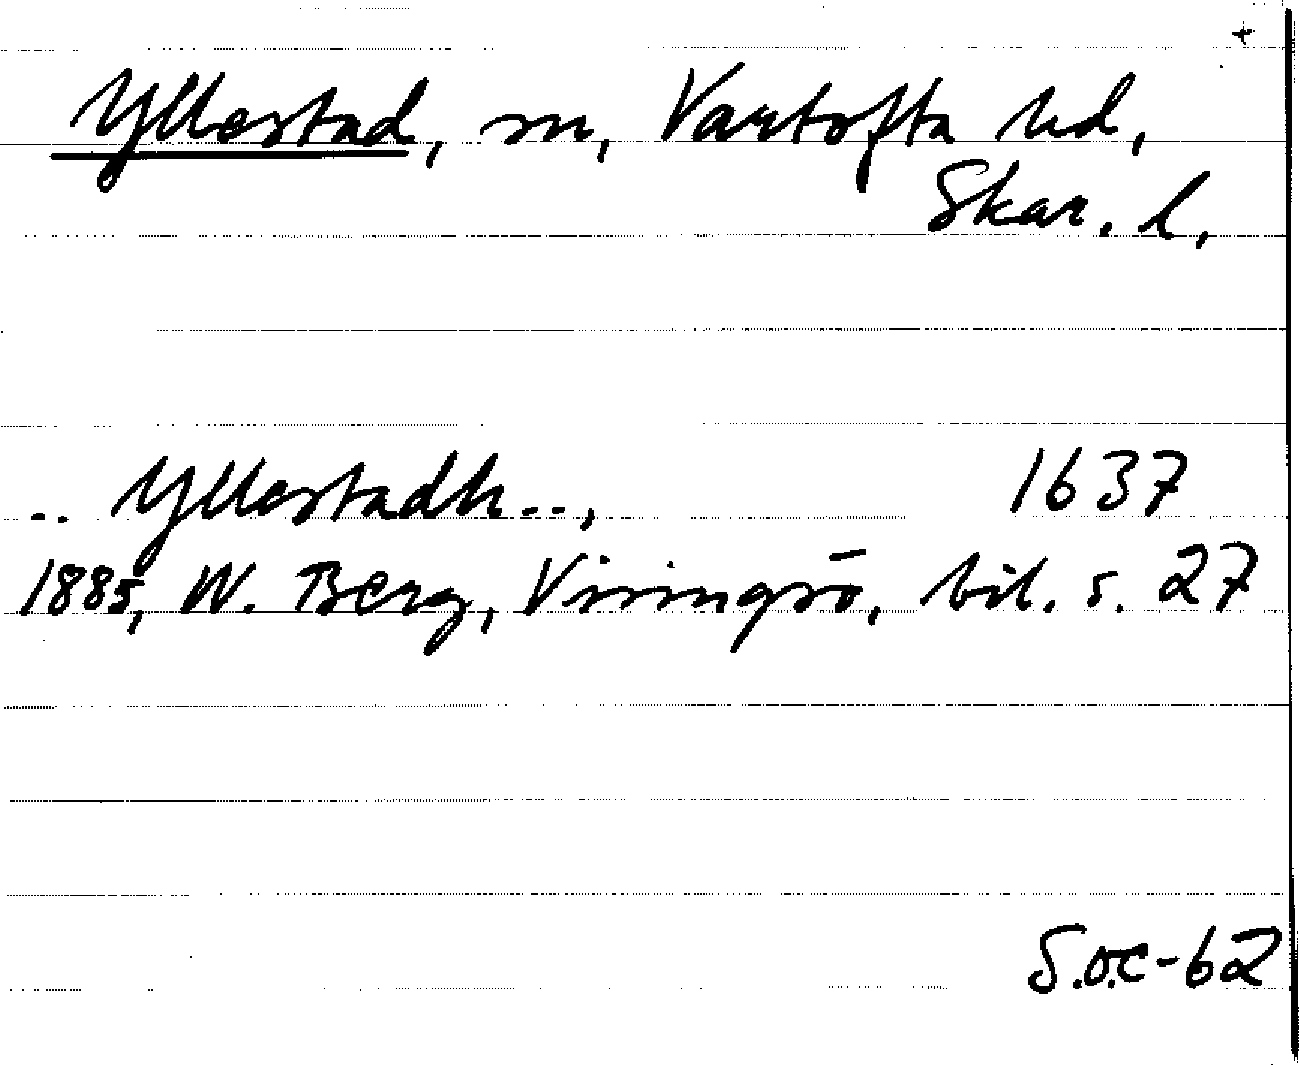 +
Yllestad, sn, Vartofta hd,
Skar. l.
.. Yllestadh.., 1637
1885, W. Berg, Visingsö, bil. s. 27
S.O.C-62